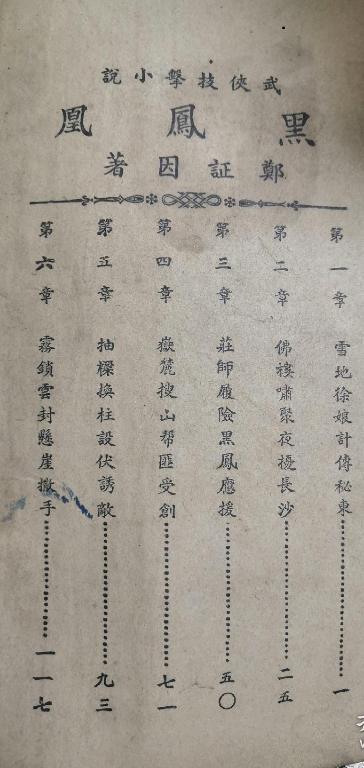 武俠技擊小說
黑鳳凰
鄭証因著
第一章 雪地徐娘計傳秘柬……一
第二章 佛樓嘯聚夜擾長沙……二五
第三章 莊師履險黑鳳應援……五〇
第四章 嶽麓搜山帮匪受創……七一
第五章 抽樑換柱設伏誘敵……九三
第六章 霧鎖雲封懸崖撤手……一一七